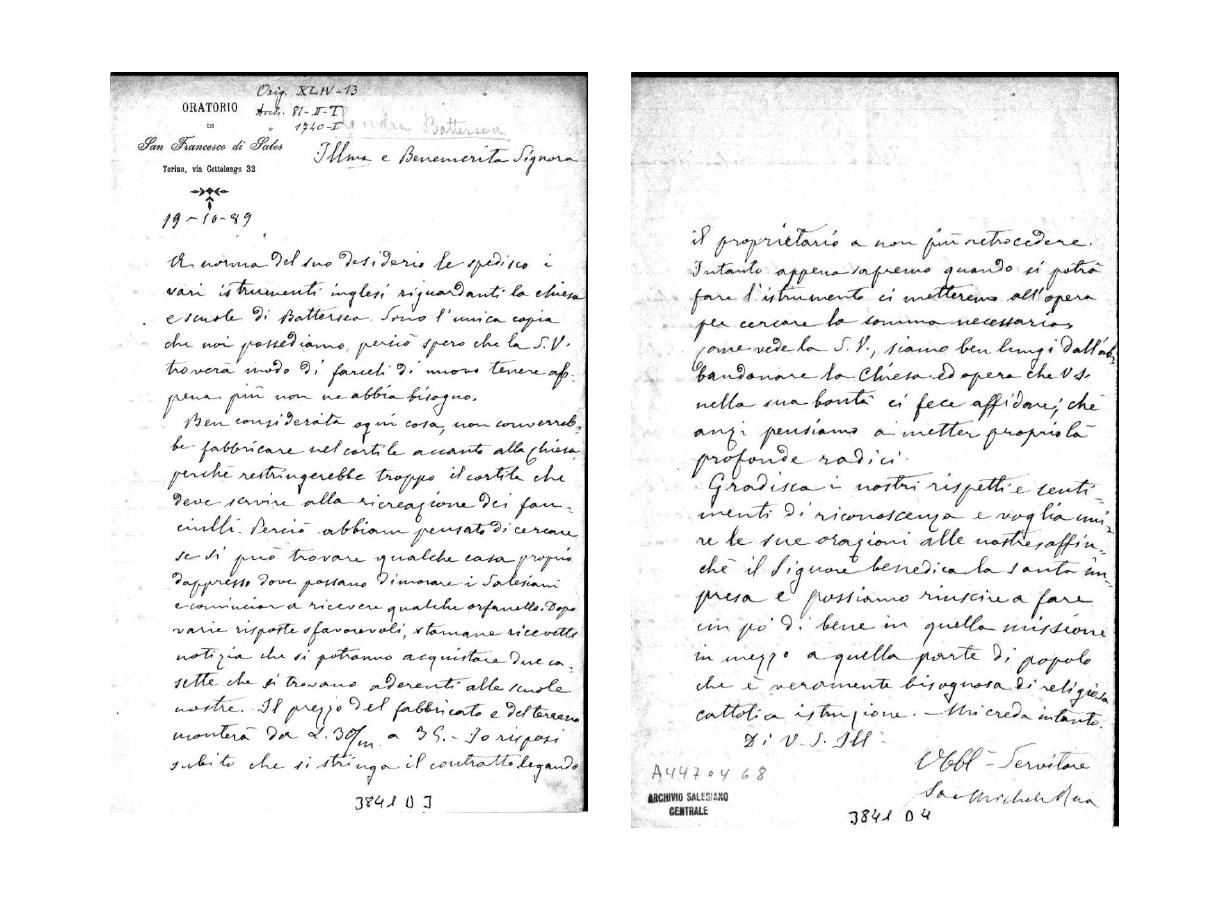 Orig. XLIV-13
ORATORIO
Arch. 81-II-I
DI
" 1740-I
Londra Battersea
San Francesco di Sales
Illma e Benemerita Signora
Torino, via Cottolengo 32
19-10-89
A norma del suo desiderio le spedisco i
vari istrumenti inglesi riguardanti la chiesa
e scuole di Battersea. Sono l'unica copia
che noi possediamo, perciò spero che la S.V.
troverà modo di farceli di nuovo tenere ap-
pena più non ne abbia bisogno.
Ben considerata ogni cosa, non converreb-
be fabbricare nel cortile accanto alla Chiesa
perchè restringerebbe troppo il cortile che
deve servire alla ricreazione dei fan-
ciulli. Perciò abbiam pensato di cercare
se si può trovare qualche casa proprio
dappresso dove possano dimorare i Salesiani
e cominciar a ricevere qualche orfanello. Dopo
varie risposte sfavorevoli, stamane ricevetti
notizia che si potranno acquistare due ca-
sette che si trovano aderenti alle scuole
nostre. Il prezzo del fabbricato e del terreno
monterà da L. 30/m a 35.- Io risposi
subito che si stringa il contratto legando
3841 D 3
il proprietario a non più retrocedere.
Intanto appena sapremo quando si potrà
fare l'istrumento ci metteremo all'opera
per cercare la somma necessaria.
Come vede la S.V., siamo ben lungi dall'ab-
bandonare la Chiesa ed opera che V.S.
nella sua bontà ci fece affidare; chè
anzi pensiamo a metter proprio là
profonde radici.
Gradisca i nostri rispetti e senti-
menti di riconoscenza e voglia uni-
re le sue orazioni alle nostre affin-
chè il Signore benedica la santa im-
presa e possiamo riuscire a fare
un pò di bene in quella missione
in mezzo a quella parte di popolo
che è veramente bisognosa di religiosa
cattolica istruzione. - Mi creda intanto.
Di V. S. Ill.
Obbl- Servitore
Sac Michele Rua
A4470468
ARCHIVIO SALESIANO
CENTRALE
3841 D 4